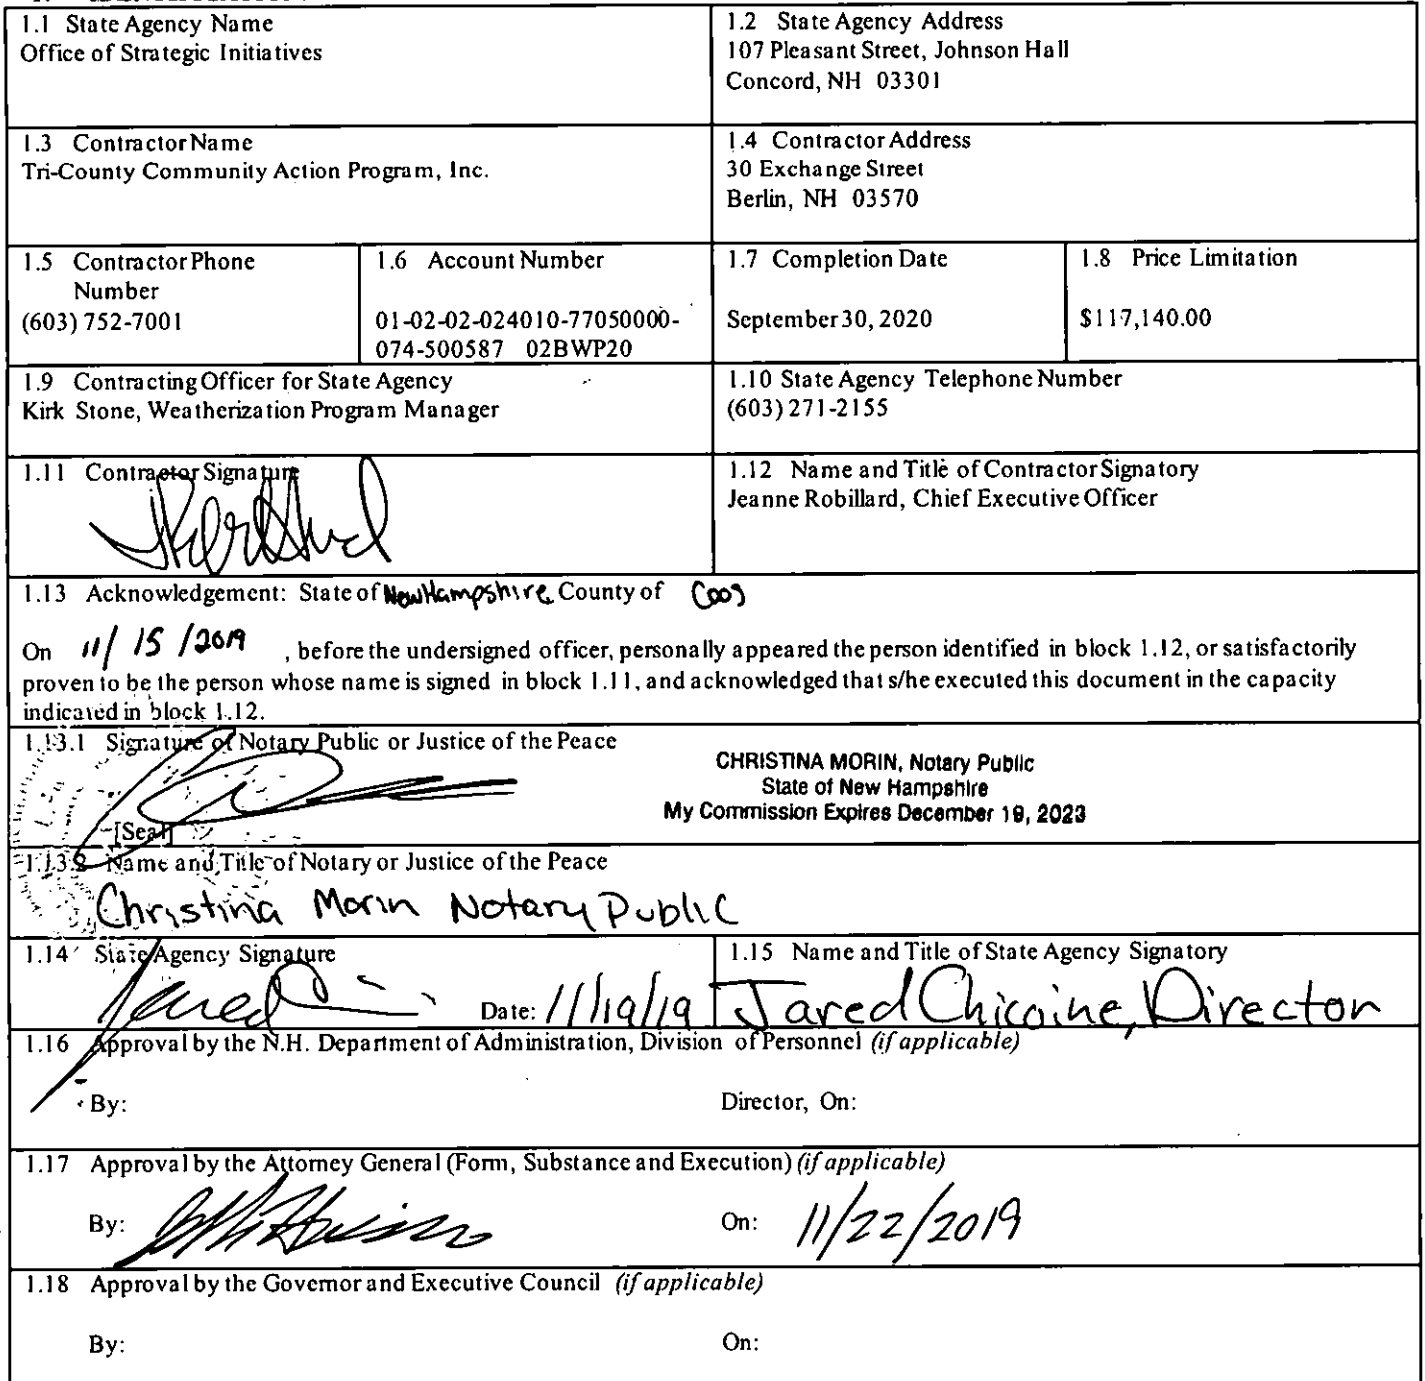 1.1 State Agency Name
Office of Strategic Initiatives
1.2 State Agency Address
107 Pleasant Street, Johnson Hall
Concord, NH 03301
1.3 Contractor Name
Tri-County Community Action Program, Inc.
1.4 Contractor Address
30 Exchange Street
Berlin, NH 03570
1.5 Contractor Phone
Number
(603) 752-7001
1.6 Account Number
01-02-02-024010-77050000-
074-500587 02BWP20
1.7 Completion Date
September 30, 2020
1.8 Price Limitation
$117,140.00
1.9 Contracting Officer for State Agency
Kirk Stone, Weatherization Program Manager
1.10 State Agency Telephone Number
(603) 271-2155
1.11 Contractor Signature
1.12 Name and Title of Contractor Signatory
Jeanne Robillard, Chief Executive Officer
1.13 Acknowledgement: State of New Hampshire County of Coos
On 11/15/2019, before the undersigned officer, personally appeared the person identified in block 1.12, or satisfactorily
proven to be the person whose name is signed in block 1.11, and acknowledged that s/he executed this document in the capacity
indicated in block 1.12.
1.13.1 Signature of Notary Public or Justice of the Peace
CHRISTINA MORIN, Notary Public
State of New Hampshire
My Commission Expires December 19, 2023
[Seal]
1.13.2 Name and Title of Notary or Justice of the Peace
Christina Morin Notary Public
1.14 State Agency Signature
Jared
Date: 11/19/19
1.15 Name and Title of State Agency Signatory
Jared Chicoine, Director
1.16 Approval by the N.H. Department of Administration, Division of Personnel (if applicable)
By: Director, On:
1.17 Approval by the Attorney General (Form, Substance and Execution) (if applicable)
By: On: 11/22/2019
1.18 Approval by the Governor and Executive Council (if applicable)
By: On: